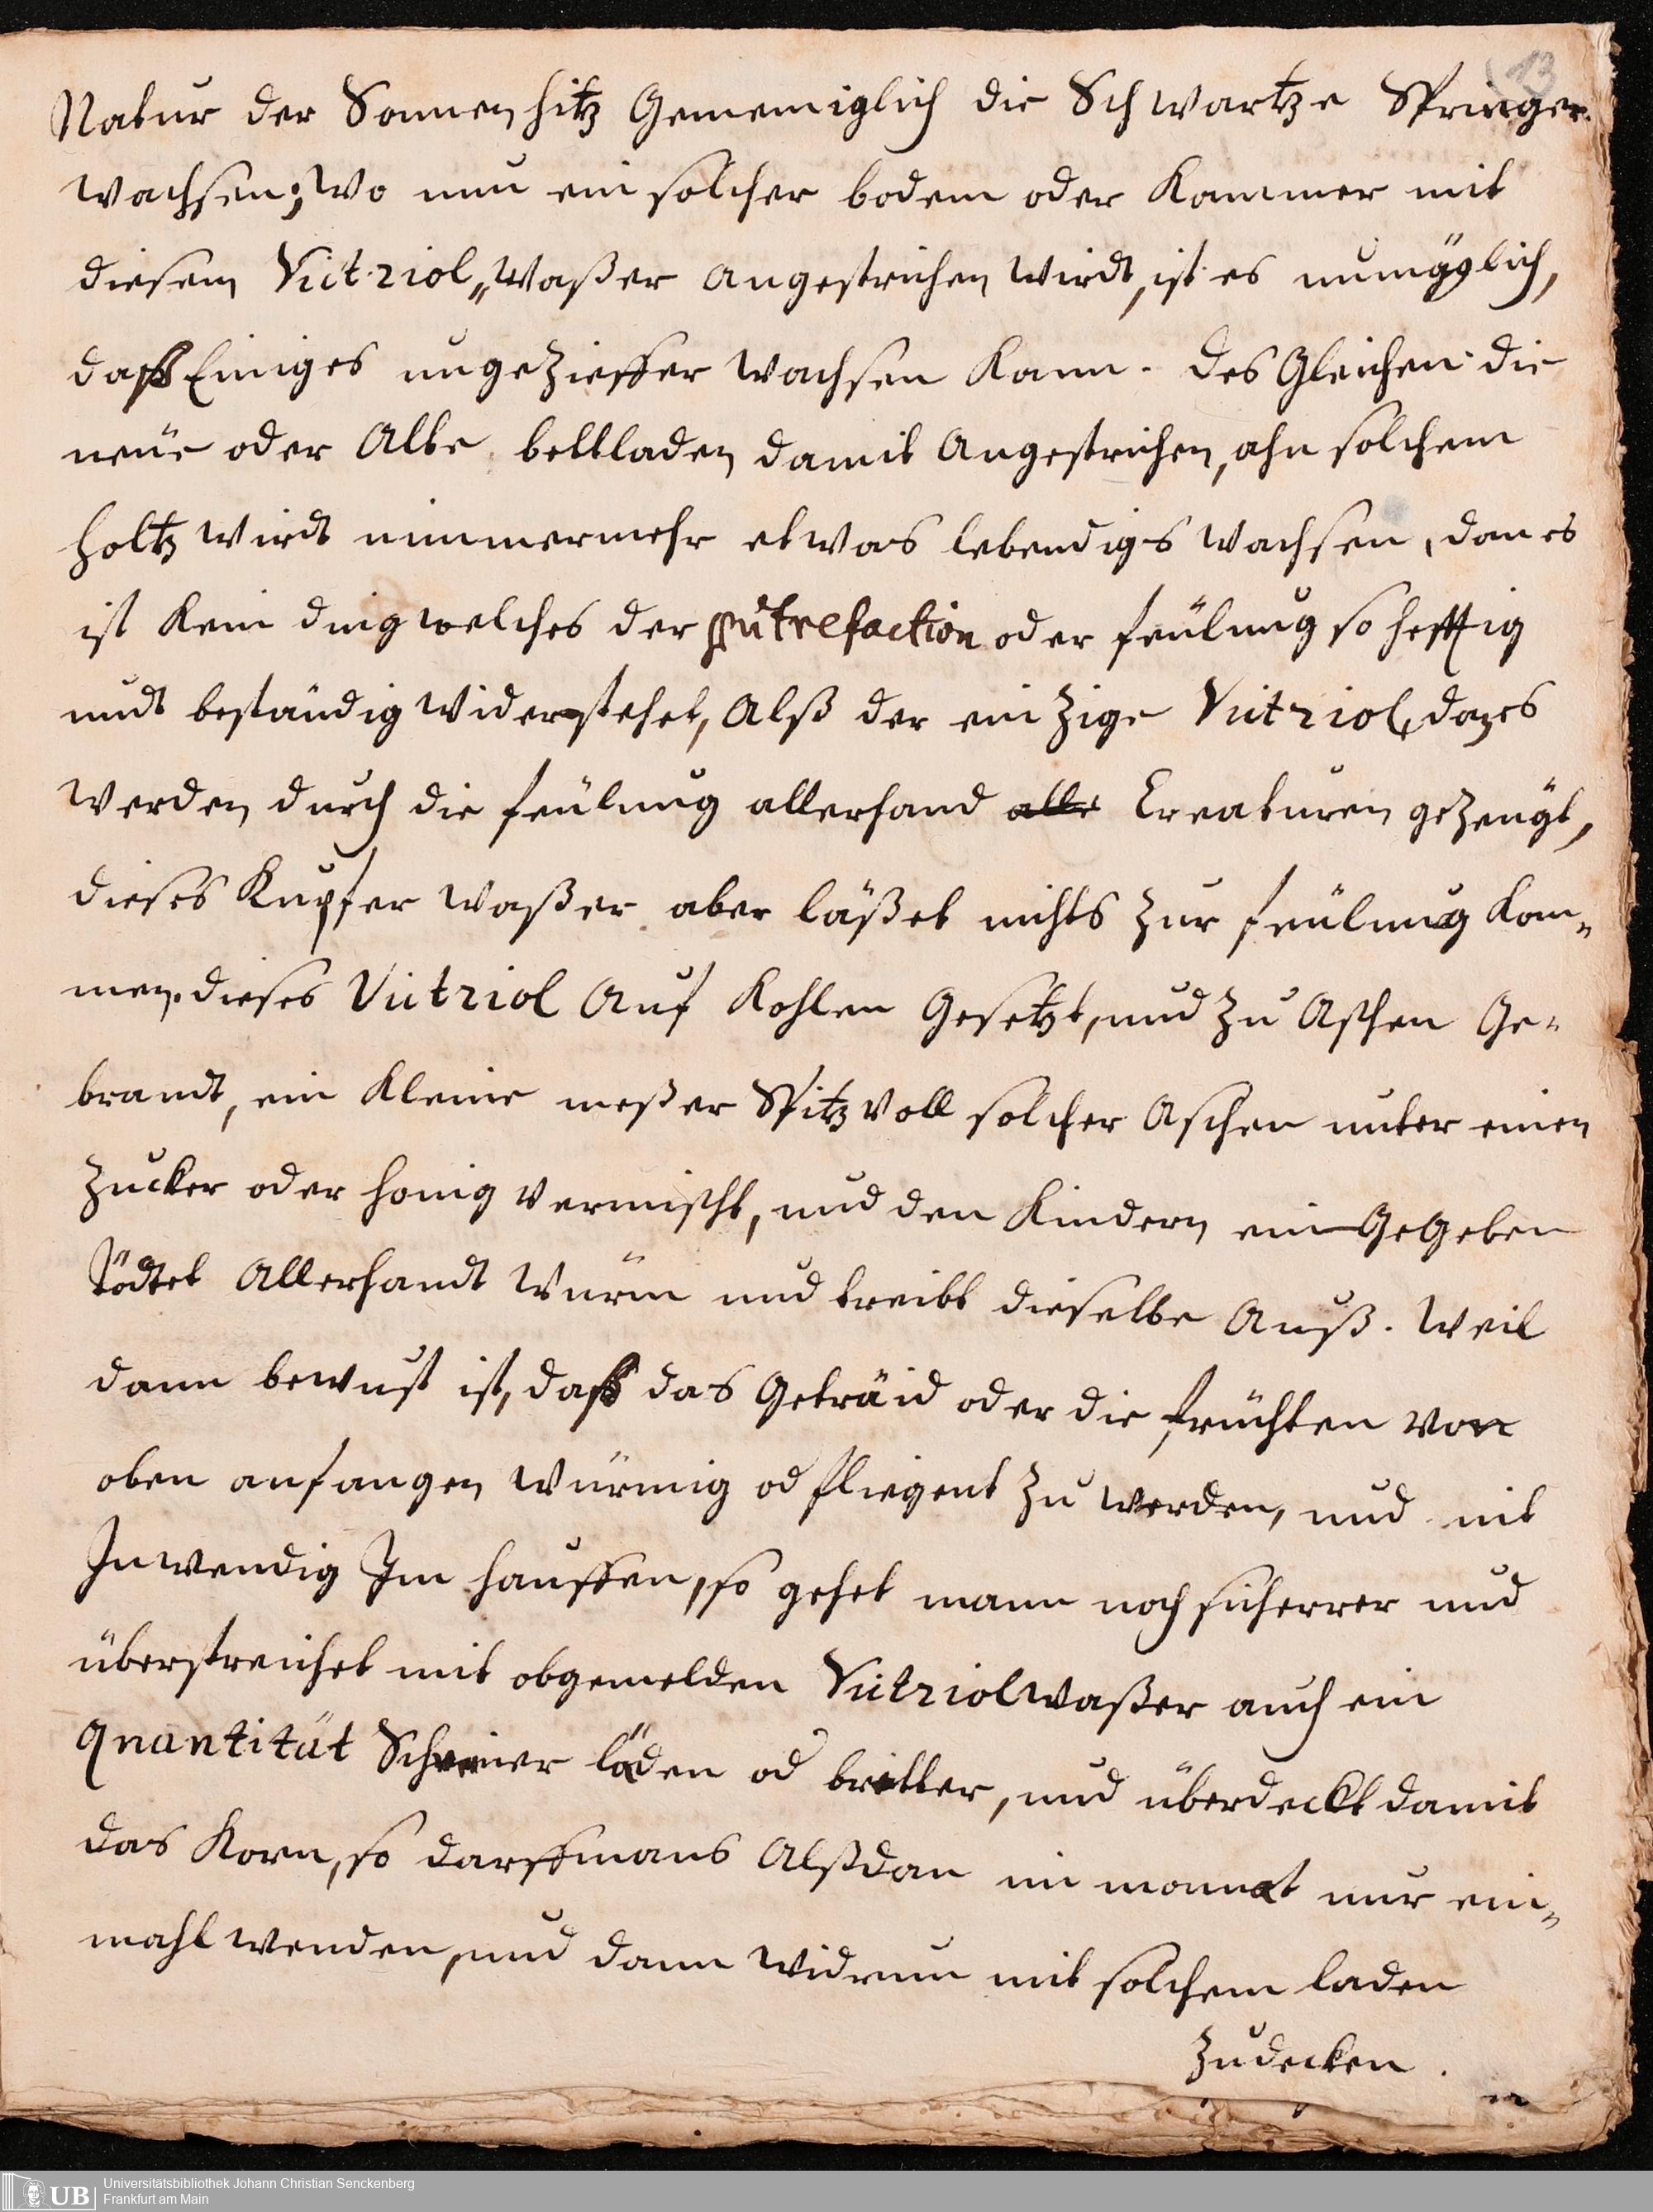 13
Natur der Sonnen hitz Gemeiniglich die Schwartze Springer
wachsen; wo nun ein solcher bodem oder Kammer mit
diesem Victriol„ waßer angestrichen wirdt, ist es unmöglich,
daß Einiges ungezieffer wachsen kann. des Gleichen die
neüe oder Alte bettladen damit angestrichen, ahn solchem
holtz wirdt nimmermehr etwas lebendigs wachsen, dan es
ist kein ding welches der putrefaction oder feülnug so hefftig
undt beständig widerstehet, Alß der einzige Victriol, dan es
werden durch die feülnug allerhand alle Creaturen gezeugt,
dieses Kupfer waßer aber läßet nichts zur feülnug kom„
men. dieses Victriol Auf Kohlen Gesetzt, und zu Aschen Ge„
brandt, ein kleine meßer Spitz voll solcher Aschen unter einen
Zucker oder honig vermischt, und den Kindern ein GeGeben
Tödtet Allerhandt würm und treibt dieselbe Auß. Weil
dann bewust ist, daß das Geträid oder die früchten von
oben anfangen würmig od fliegent zu werden, und nit
Inwendig Im hauffen, so gehet mann noch sicherrer und
überstreichet mit obgemelden Victriolwaßer auch ein
Quantität Schreiner läden od bretter, und überdeckt damit
das Korn, so darffmans Alßdan im monnat nur ein„
mahl wenden, und dann widrum mit solchem laden
zudecken.
UB
Universitätsbibliothek Johann Christian Senckenberg
Frankfurt am Main